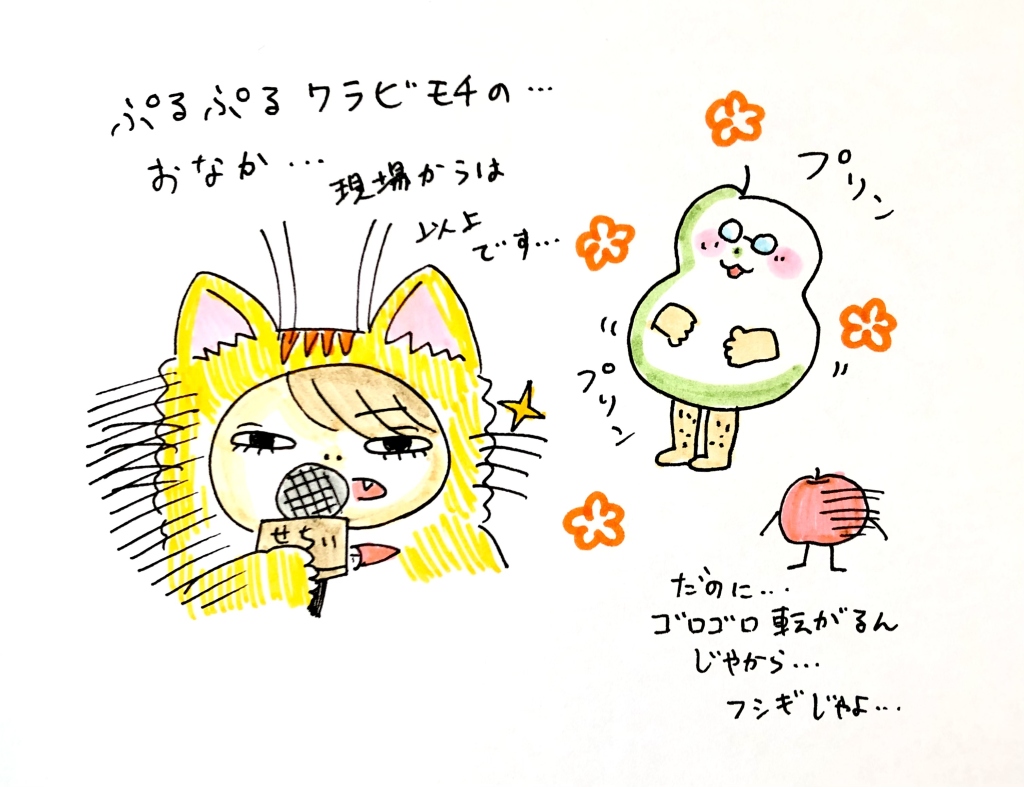 ぷるぷるワラビモチの…
おなか…
現場からは
以上
です…
せちぃ
プリン
プリン
だのに…
ゴロゴロ転がるん
じゃから…
フシギじゃよ…